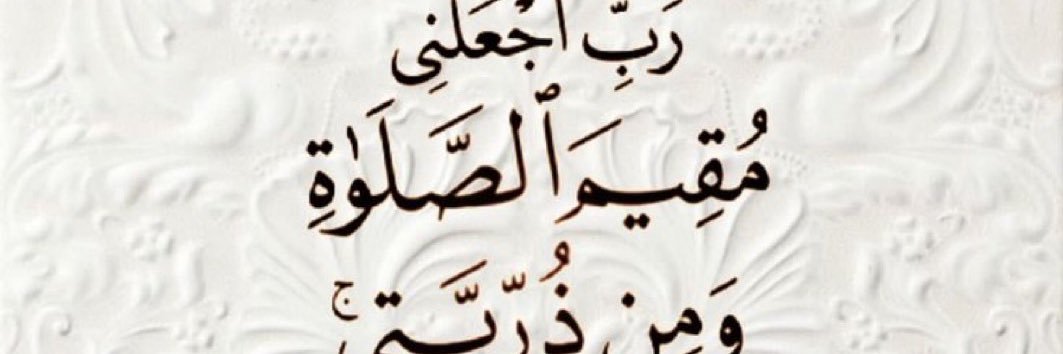 رَبِّ ٱجۡعَلۡنِی
مُقِیمَ ٱلصَّلَوٰةِ
وَمِن ذُرِّیَّتِیۚ